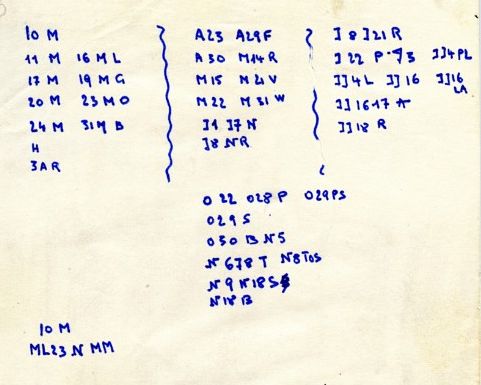 10 M
11 M 16 M L
17 M 19 M G
20 M 23 M O
24 M 31 M B
H
3 A R
A 23 A 29 F
A 30 M 14 R
M 15 M 21 V
M 22 M 31 W
J 1 J 7 N
J 8 N R
J 8 J 21 R
J 22 P JJ 4 PL
JJ 4 L JJ 16 JJ 16 LA
JJ 16 17 A
JJ 18 R
O 22 O 28 P O 29 PS
O 29 S
O 30 B N 5
N 6 7 8 T N 8 TOS
N 9 N 18 S
N 18 B
10 M
ML 23 N MM